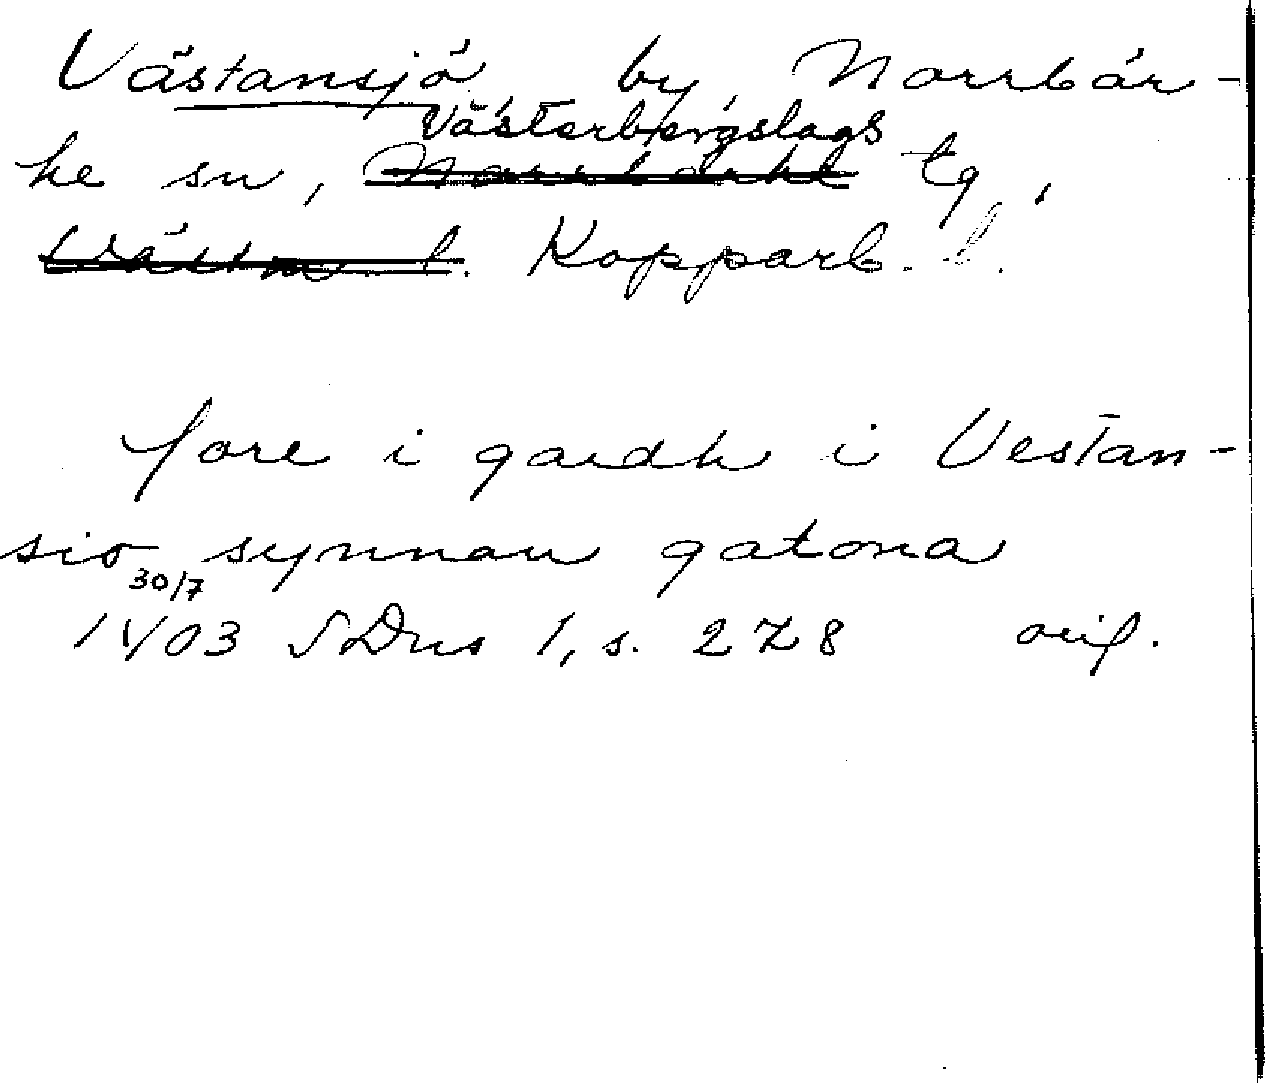 Västansjö, by, Norrbär-
Västerbergslags
ke sn, Norrbärke tg,
Västm. l. Kopparb. l.
fore i gardh i Vestan-
sio synnan gatona
30/7
1403 SDns 1, s. 278 orig.